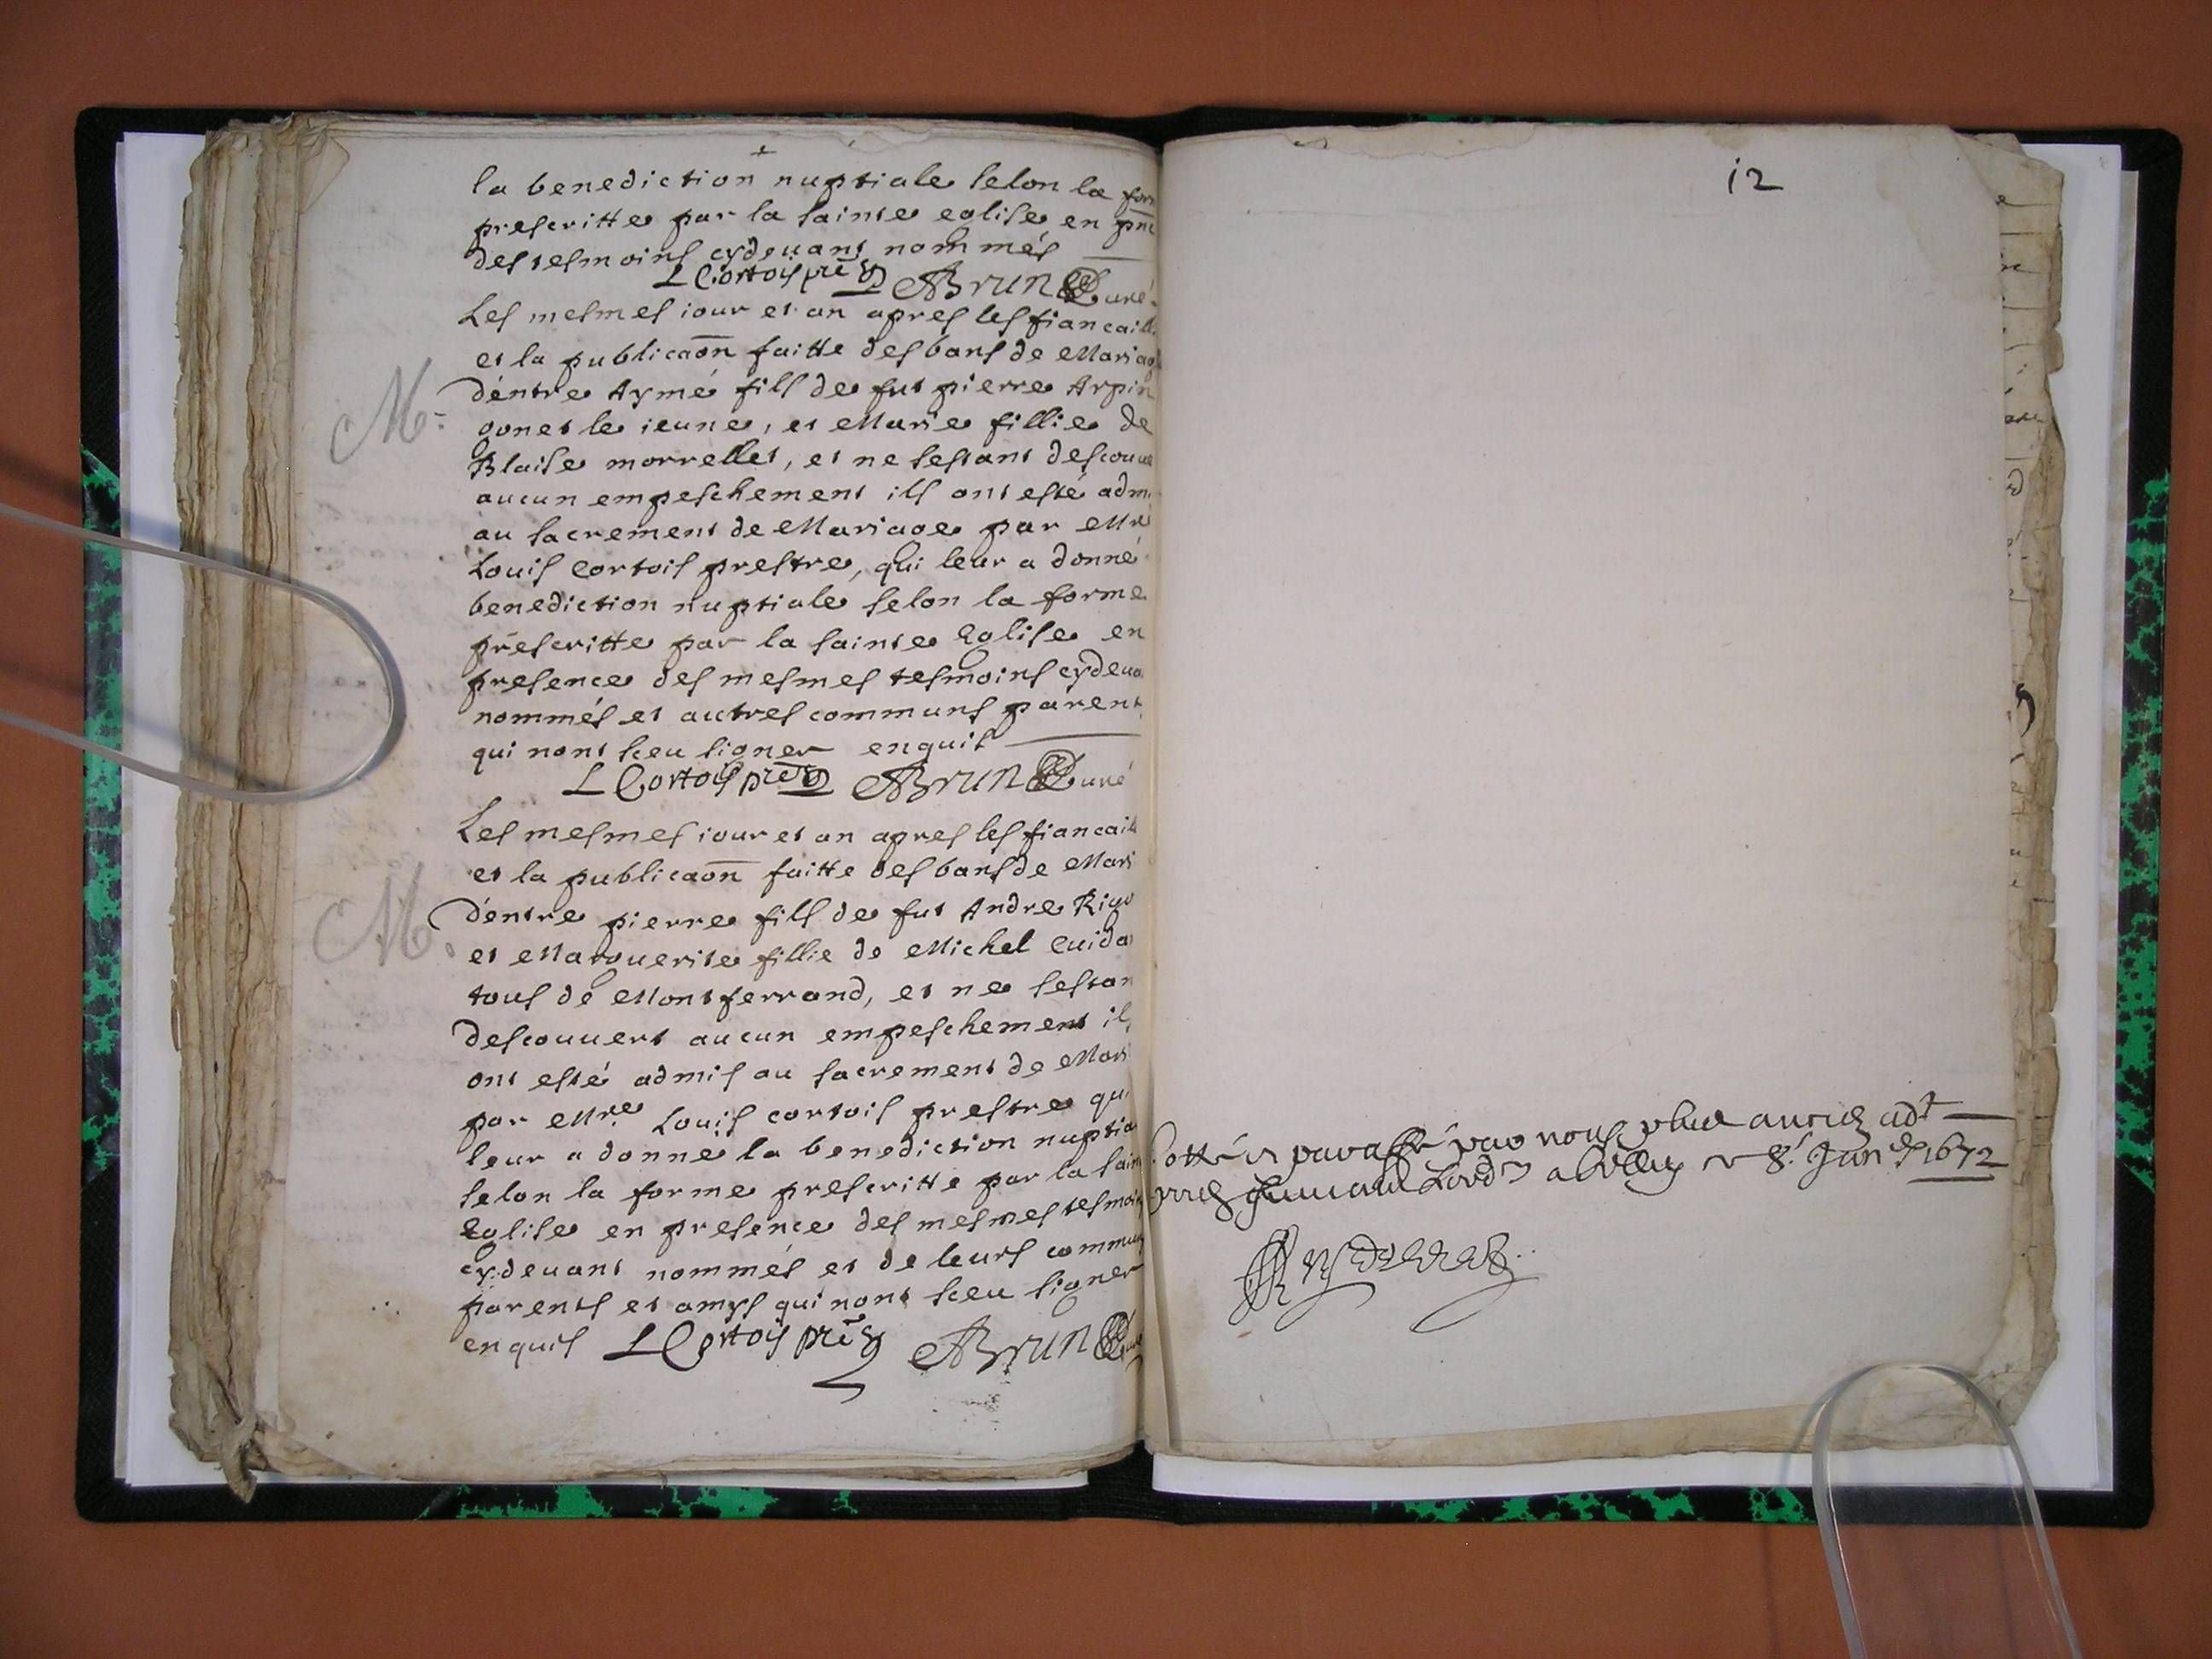 la benediction nuptiale selon la for
prescritte par la sainte eglise en pñc
des tesmoins cydeuant nommés
L Cortois pr̃e ABrun Curé
Les mesmes iour et an apres les fiancaill
et la publicaõn faitte des bans de Mariag
M.
dentre Aymé fils de fut pierre Arpin
gonet le ieune, et Marie fillie de
Blaise morrellet, et ne sestant descouue
aucun empeschement ils ont esté adm
au sacrement de Mariage par Mre
Louis Cortois prestre, qui leur a donné
benediction nuptiale selon la forme
prescritte par la sainte Eglise en
presence des mesmes tesmoins cydeua
nommés et autres communs parent
qui nont sceu signer enquis
L Cortois pr̃e ABrun Curé
Les mesmes iour et an apres les fiancaill
et la publicaõn faitte des bans de Mari
M.
dentre pierre fils de fut Andre Rigo
et Marguerite fillie de Michel Cuida
tous de Montferrand, et ne sestan
descouuert aucun empeschement ils
ont esté admis au sacrement de Mari
par Mre Louis cortois prestre qui
leur a donne la benediction nuptia
selon la forme prescritte par la sain
Eglise en presence des mesmes tesmoin
cydeuant nommés et de leurs commun
parents et amys qui nont sceu signer
enquis L Cortois pr̃e ABrun Curé
12
Cotté et paraffé par nous
a Belley 8e Jan 1672